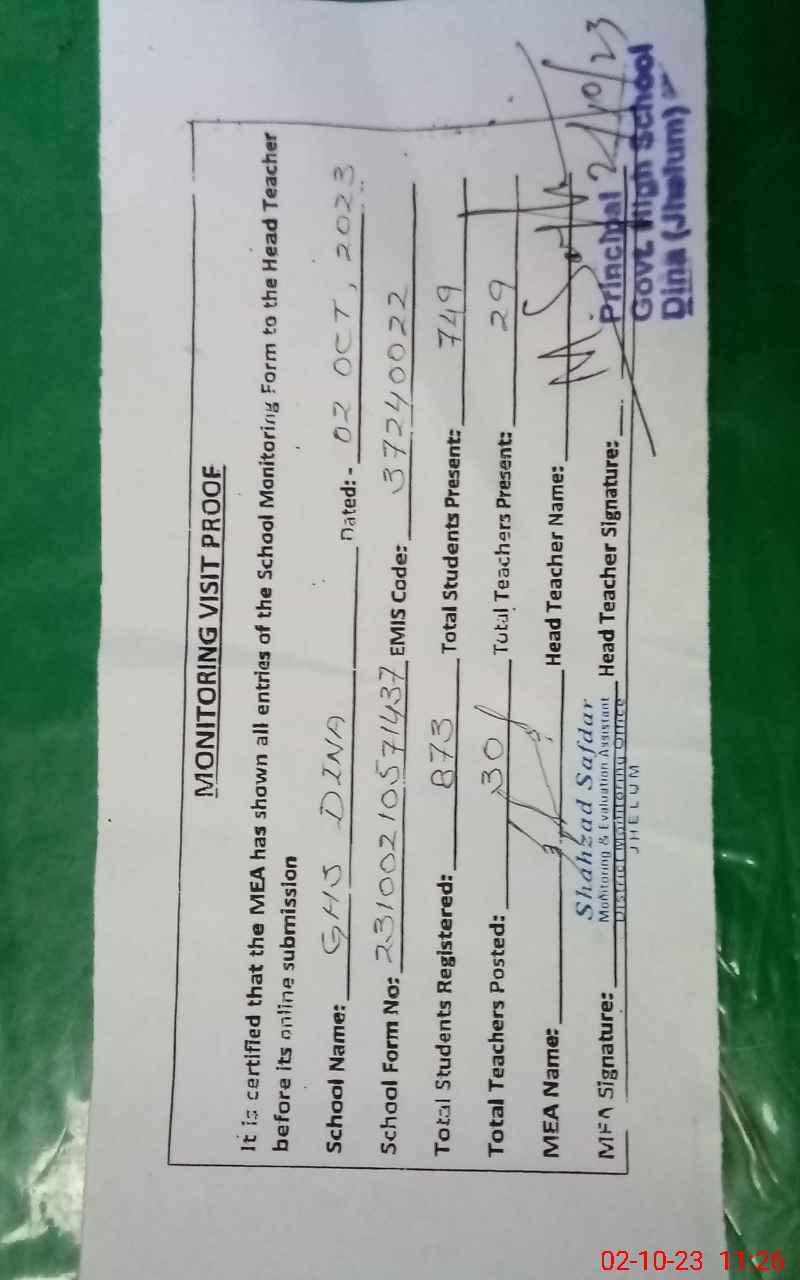 MONITORING VISIT PROOF
It is certified that the MEA has shown all entries of the School Monitoring Form to the Head Teacher
before its online submission
School Name: GHS DINA Dated: - 02 OCT, 2023
School Form No: 231002105714​37 EMIS Code: 37240022
Total Students Registered: 873 Total Students Present: 749
Total Teachers Posted: 30 Total Teachers Present: 29
MEA Name: Head Teacher Name:
MEA Signature: Head Teacher Signature:
Shahzad Safdar
Monitoring & Evaluation Assistant
District Monitoring Office
JHELUM
Principal 2/10/23
Govt. High School
Dina (Jhelum)
02-10-23 11:26